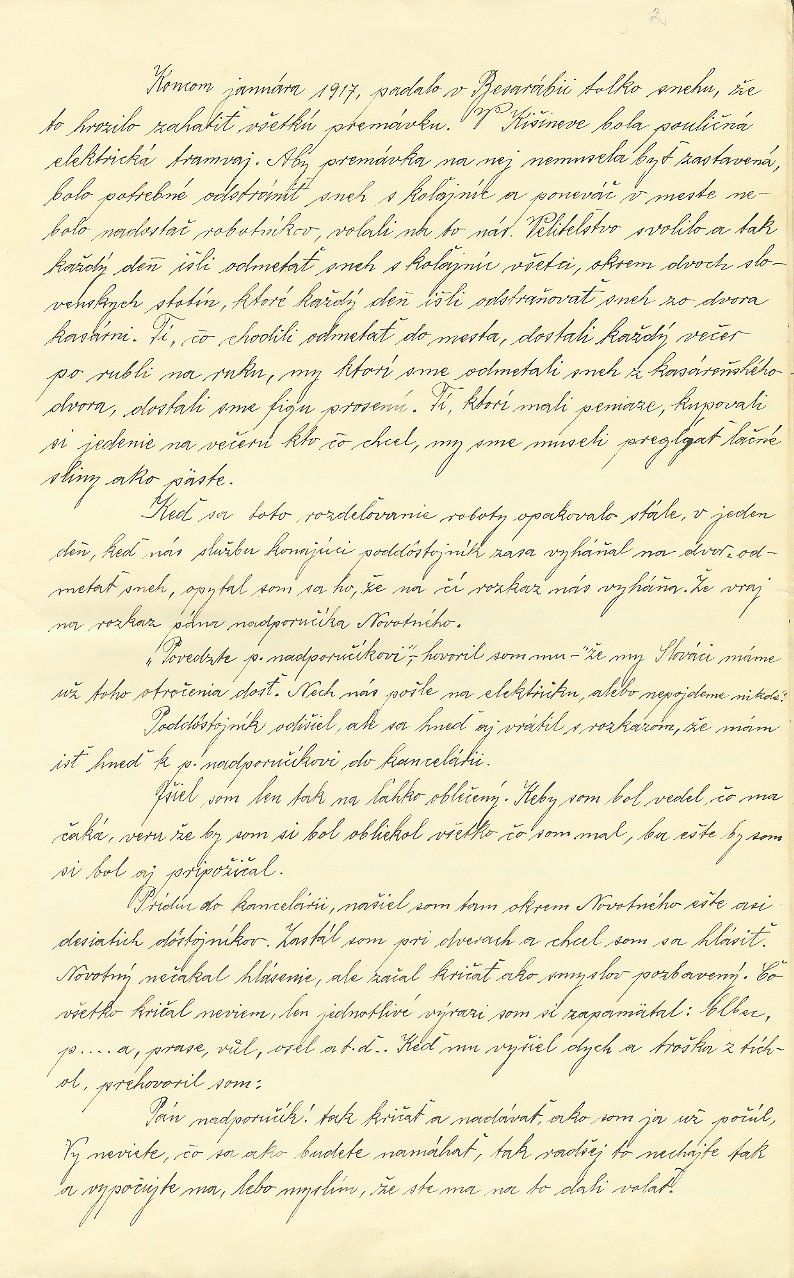 2
Koncom januára 1917, padalo v Besarábii tolko snehu, že
to hrozilo zahatiť všetkú premávku. V Kišineve bola pouličná
elektrická tramvaj. Aby premávka na nej nemusela byť zastavená,
bolo potrebné odstrániť sneh s kolajníc a poneváč v meste ne-
bolo nadostač robotníkov, volali na to nás. Velitelstvo svolilo a tak
každý deň išli odmetať sneh s kolajníc všetci, okrem dvoch slo-
venských stotín, ktoré každý deň išli odstraňovať sneh zo dvora
kasárni. Tí, čo chodili odmetať do mesta, dostali každý večer
po rubli na ruku, my ktorí sme odmetali sneh z kasáreňského
dvora, dostali sme figu prosenú. Tí, ktorí mali peniaze, kupovali
si jedenie na večeru kto čo chcel, my sme museli preglgať lačné
sliny ako päste.
Keď sa toto rozdelovanie roboty opakovalo stále, v jeden
deň, keď nás službu konajúci poddôstojník zasa vyháňal na dvor od-
metať sneh, opýtal som sa ho, že na čí rozkaz nás vyháňa. Že vraj
na rozkaz pána nadporučíka Novotného.
„Povedzte p. nadporučíkovi",- hovoril som mu -"že my Slováci máme
už toho otročenia dosť. Nech nás pošle na elektriku, alebo nepojdeme nikde".
Poddôstojník odišiel, ale sa hneď aj vrátil s rozkazom, že mám
isť hneď k p. nadporučíkovi do kancelárii.
Išiel som len tak na ľahko oblečený. Keby som bol vedel čo ma
čaká, veru že by som si bol obliekol všetko čo som mal, ba ešte by som
si bol aj pripožičal.
Prídúc do kancelárii, našiel som tam okrem Novotného ešte asi
desiatich dôstojníkov. Zastál som pri dverach a chcel som sa hlásiť.
Novotný nečakal hlásenie, ale začal kričať ako smyslov pozbavený. Čo
všetko kričal neviem, len jednotlivé výrazi som si zapamätal: blbec,
p....a, prase, vůl, osel a t. d.. Keď mu vyšiel dych a troška z tích-
ol, prehovoril som:
Pán nadporučík! tak kričať a nadávať, ako som ja už počúl,
Vy neviete, čo sa ako budete namáhať, tak radšej to nechajte tak
a vypočujte ma, lebo myslím, že ste ma na to dali volať.